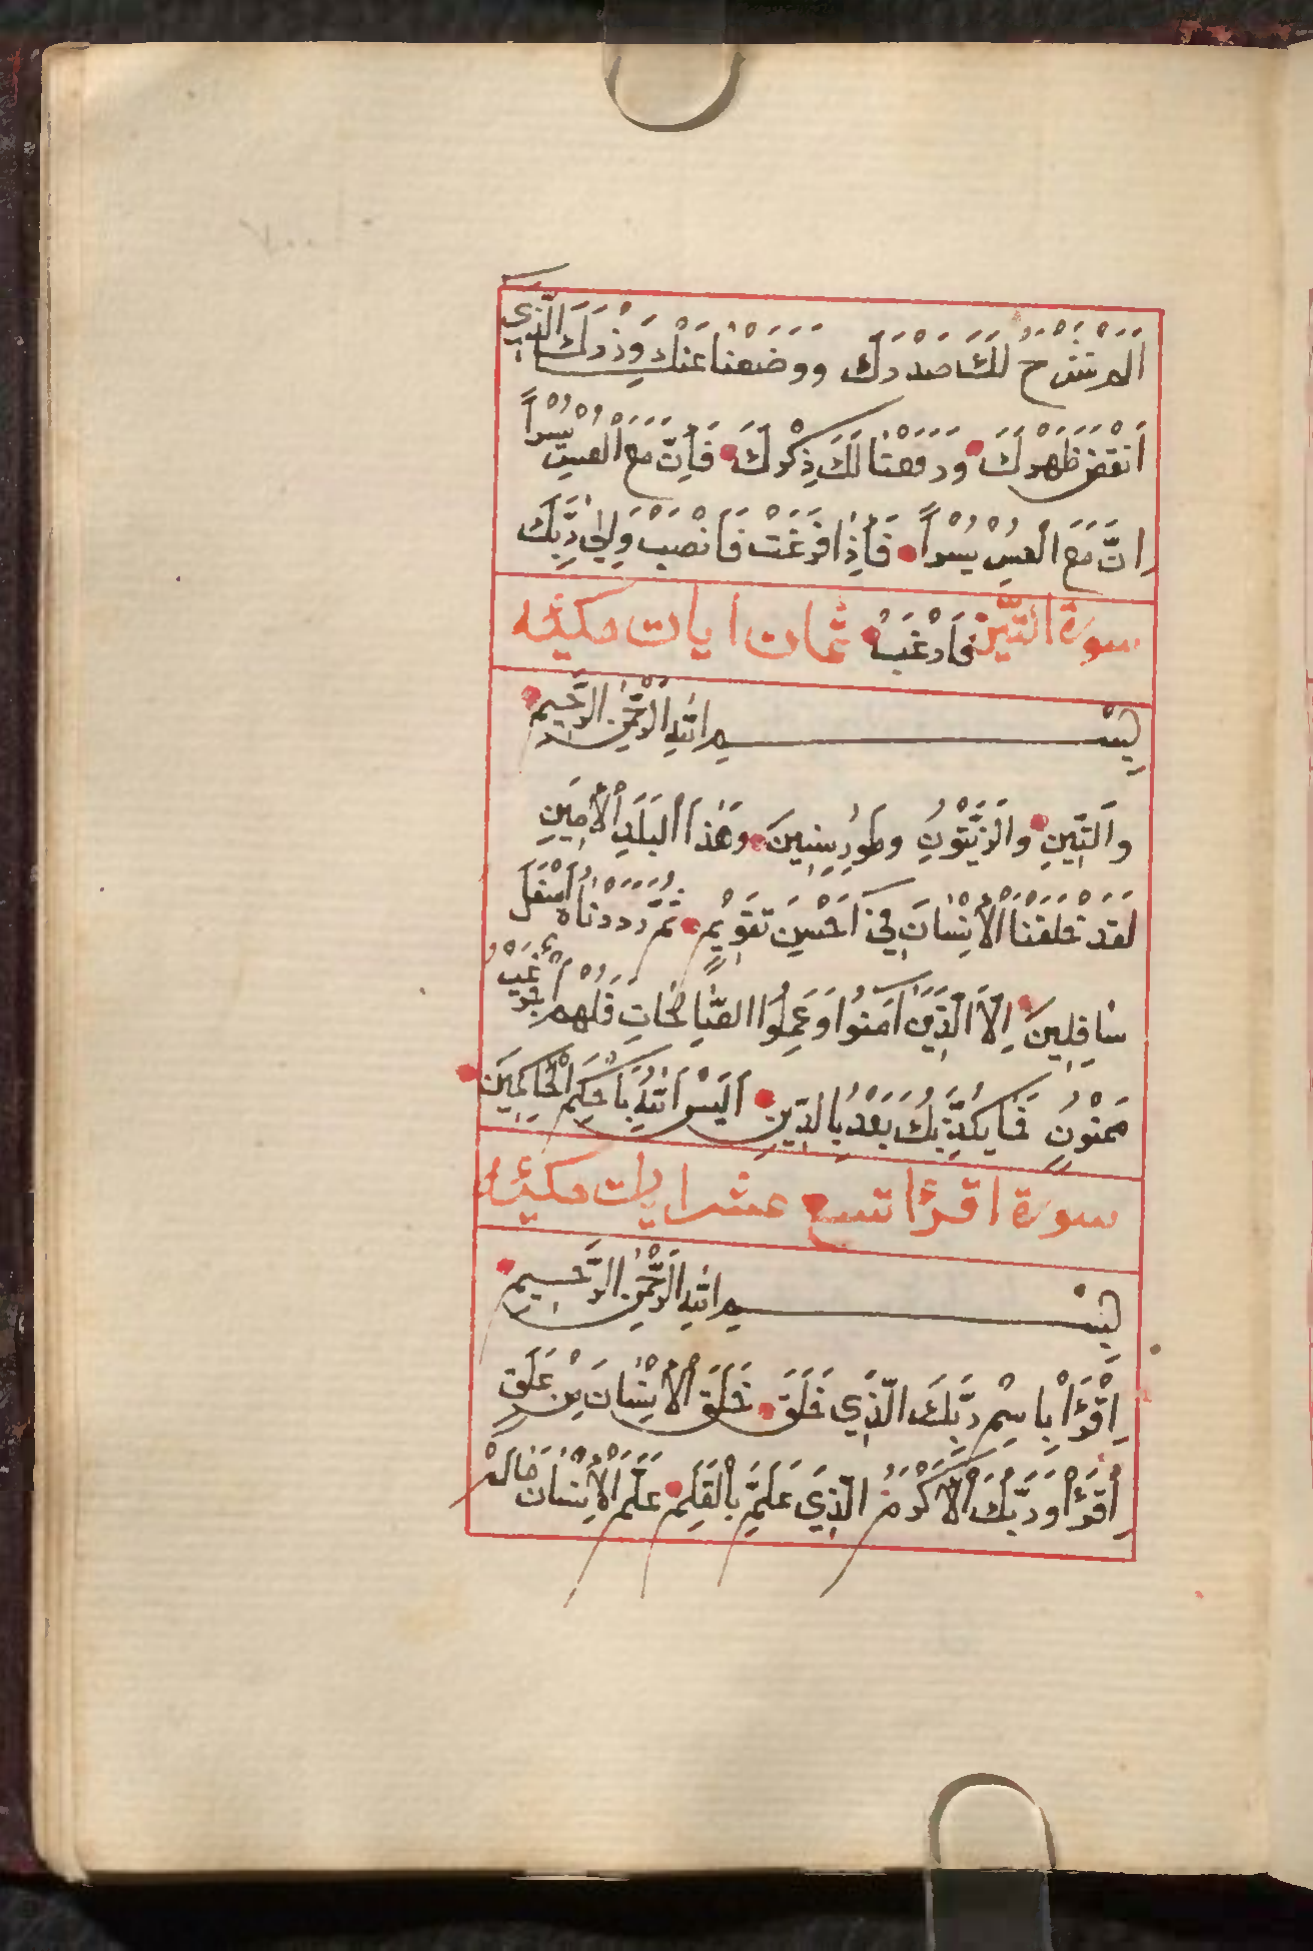 اَلَمْ نَشْرَحْ لَكَ صَدْرَكَ وَوَضَعْنَا عَنْكَ وِزْرَكَ الَّذِي
اَنْقَضَ ظَهْرَكَ وَرَفَعْنَا لَكَ ذِكْرَكَ فَاِنَّ مَعَ الْعُسْرِ يُسْراً
اِنَّ مَعَ الْعُسْرِ يُسْراً فَاِذَا فَرَغْتَ فَانْصَبْ وَاِلٰى رَبِّكَ
سورة التّين فَارْغَبْ ثمان ايات مكيّه
بِسْمِ اللّٰهِ الرَّحْمٰنِ الرَّحِيمِ
وَالتِّينِ وَالزَّيْتُونِ وَطُورِ سِينِينَ وَهٰذَا الْبَلَدِ الْاَمِينِ
لَقَدْ خَلَقْنَا الْاِنْسَانَ فِي اَحْسَنِ تَقْوِيمٍ ثُمَّ رَدَدْنَاهُ اَسْفَلَ
سَافِلِينَ اِلَّا الَّذِينَ اٰمَنُوا وَعَمِلُوا الصَّالِحَاتِ فَلَهُمْ اَجْرٌ غَيْرُ
مَمْنُونٍ فَمَا يُكَذِّبُكَ بَعْدُ بِالدِّينِ اَلَيْسَ اللّٰهُ بِاَحْكَمِ الْحَاكِمِينَ
سورة اقرأ تسع عشر ايات مكيّه
بِسْمِ اللّٰهِ الرَّحْمٰنِ الرَّحِيمِ
اِقْرَأْ بِاسْمِ رَبِّكَ الَّذِي خَلَقَ خَلَقَ الْاِنْسَانَ مِنْ عَلَقٍ
اِقْرَأْ وَرَبُّكَ الْاَكْرَمُ الَّذِي عَلَّمَ بِالْقَلَمِ عَلَّمَ الْاِنْسَانَ مَا لَمْ